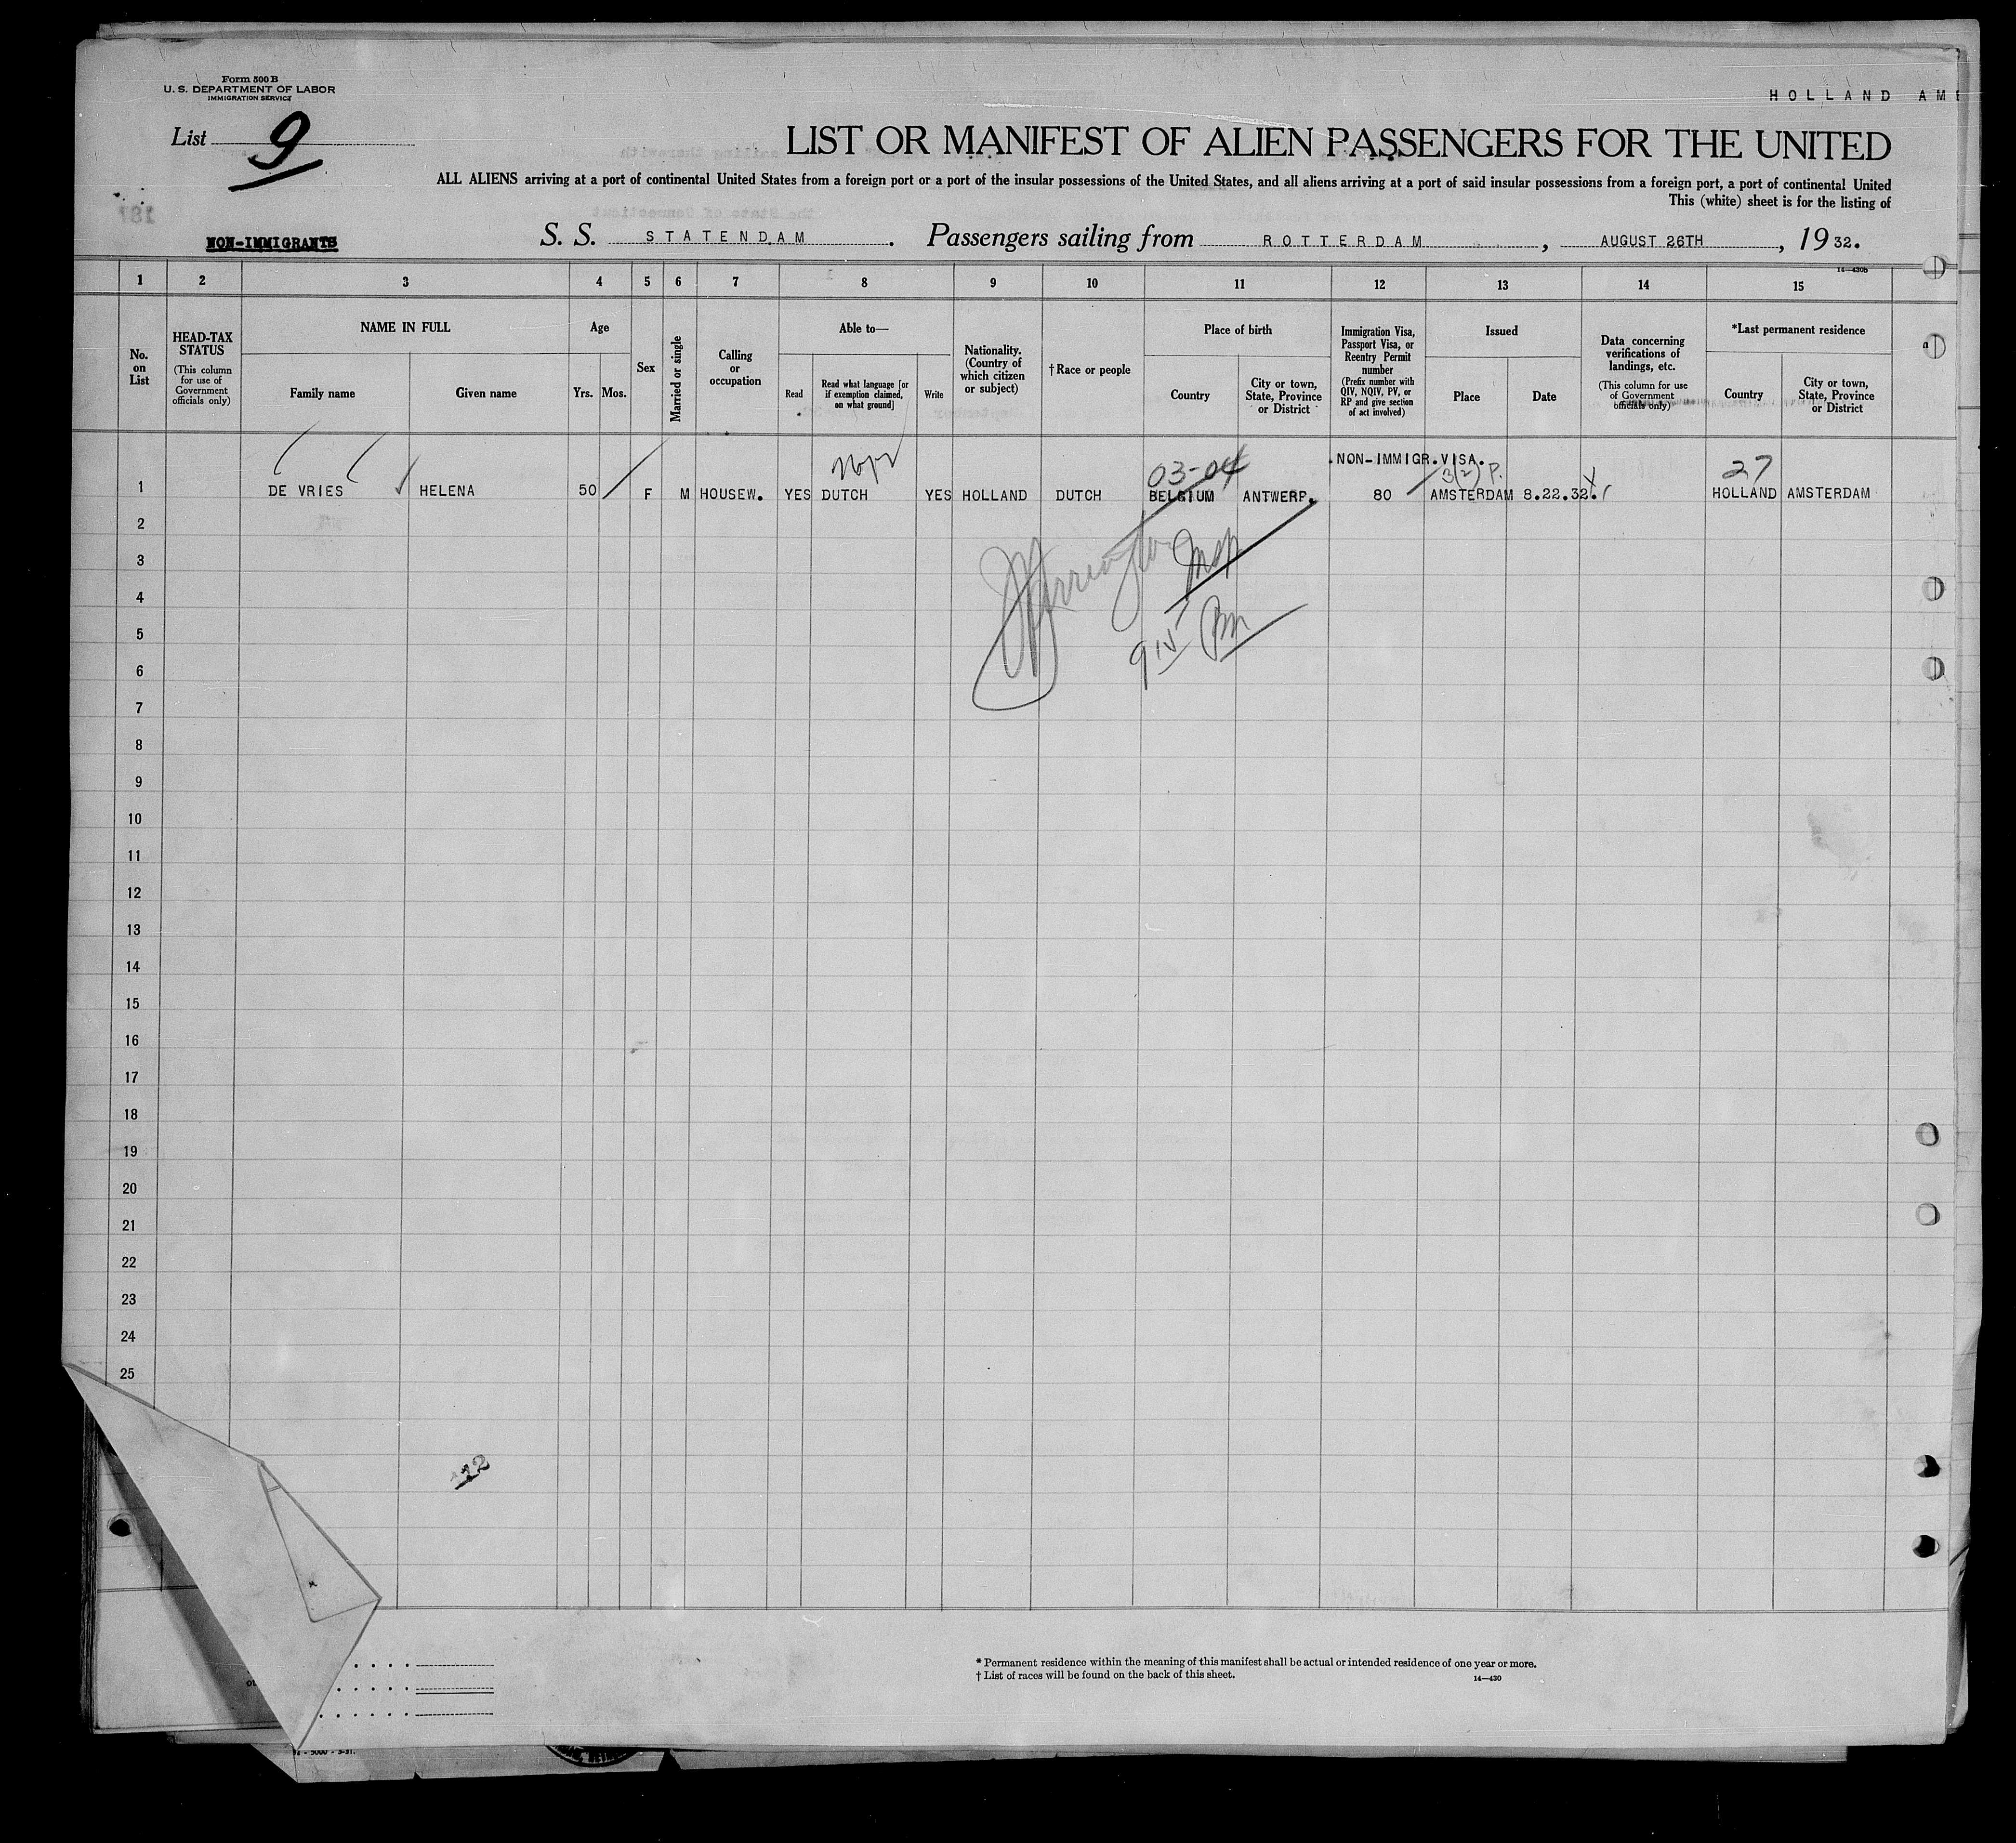 Form 500 B
U. S. DEPARTMENT OF LABOR
IMMIGRATION SERVICE
HOLLAND AME
List 9
LIST OR MANIFEST OF ALIEN PASSENGERS FOR THE UNITED
ALL ALIENS arriving at a port of continental United States from a foreign port or a port of the insular possessions of the United States, and all aliens arriving at a port of said insular possessions from a foreign port, a port of continental United
This (white) sheet is for the listing of
NON-IMMIGRANTS
S. S. STATENDAM. Passengers sailing from ROTTERDAM, AUGUST 26TH, 1932.
14—430b
1 2 3 4 5 6 7 8 9 10 11 12 13 14 15
No. on List
HEAD-TAX STATUS
(This column for use of Government officials only)
NAME IN FULL
Family name
Given name
Age
Yrs. Mos.
Sex
Married or single
Calling or occupation
Able to—
Read
Read what language [or if exemption claimed, on what ground]
Write
Nationality. (Country of which citizen or subject)
†Race or people
Place of birth
Country
City or town, State, Province or District
Immigration Visa, Passport Visa, or Reentry Permit number
(Prefix number with QIV, NQIV, PV, or RP and give section of act involved)
Issued
Place
Date
Data concerning verifications of landings, etc.
(This column for use of Government officials only)
*Last permanent residence
Country
City or town, State, Province or District
03-04 NON-IMMIGR.VISA. 27
3(2) P.
1 DE VRIES HELENA 50 F M HOUSEW. YES DUTCH YES HOLLAND DUTCH BELGIUM ANTWERP. 80 AMSTERDAM 8.22.32. HOLLAND AMSTERDAM
2
3
Insp
4
5
6
7
8
9
10
11
12
13
14
15
16
17
18
19
20
21
22
23
24
25
* Permanent residence within the meaning of this manifest shall be actual or intended residence of one year or more.
† List of races will be found on the back of this sheet.
14—430